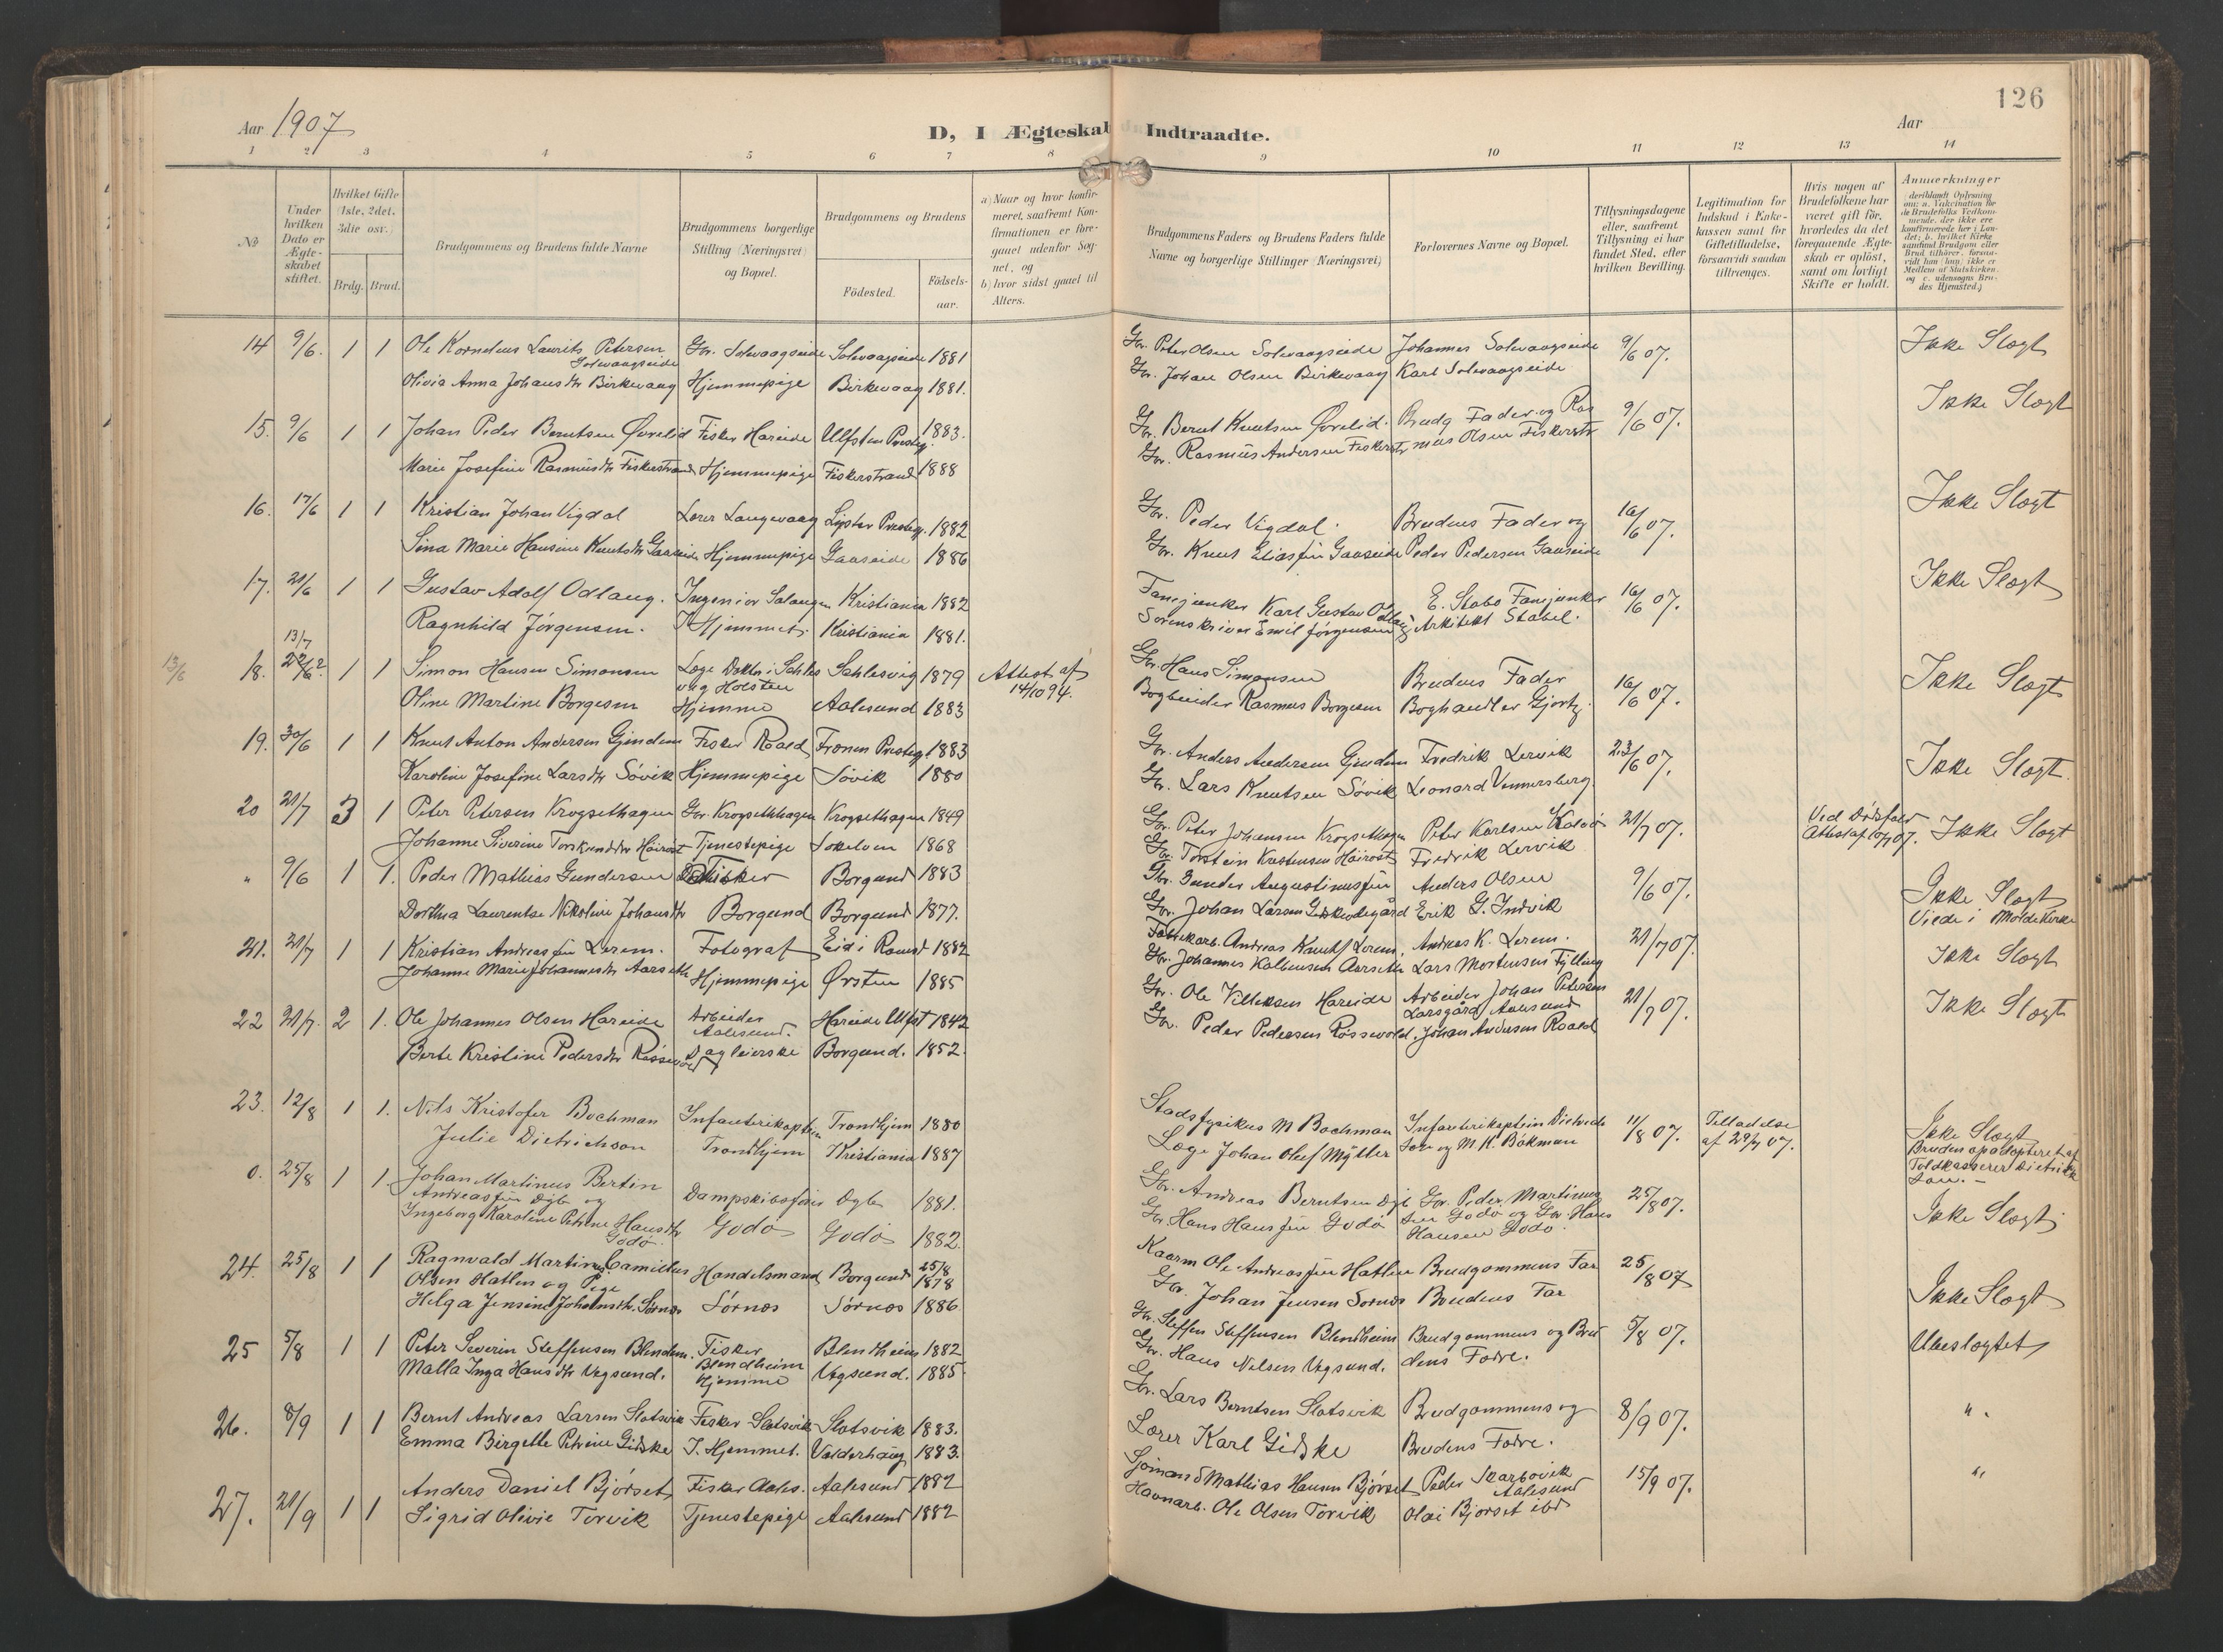 126
Aar 1907
D, I Ægteskab Indtraadte.
Aar
1 2 3 4 5 6 7 8 9 10 11 12 13 14
No
Under hvilken Dato er Ægteskabet stiftet.
Hvilket Gifte (1ste, 2det, 3die osv.)
Brdg. Brud.
Brudgommens og Brudens fulde Navne
Brudgommens borgerlige Stilling (Næringsvei) og Bopæl.
Brudgommens og Brudens
Födested.
Födselsaar.
a) Naar og hvor konfirmeret, saafremt Konfirmationen er foregaaet udenför Sognet, og
b) hvor sidst gaaet til Alters.
Brudgommens Faders og Brudens Faders fulde Navne og borgerlige Stillinger (Næringsvei)
Forlovernes Navne og Bopæl.
Tillysningsdagene eller, saafremt Tillysning ei har fundet Sted, efter hvilken Bevilling.
Legitimation for Indskud i Enkekassen samt for Giftetilladelse, forsaavidt saadan tiltrænges.
Hvis nogen af Brudefolkene har været gift för, hvorledes da det foregaaende Ægteskab er oplöst, samt om lovligt Skifte er holdt.
Anmærkninger
14 9/6. 1 1 Ole Kornelius Laurits Petersen Solevaagseide Gbr. Solevaagseide Solevaagseide 1881 Gbr. Peter Olsen Solevaagseide Johannes Solevaagseide 9/6 07. Ikke Slægt
Olivia Anna Johansdtr Birkevaag Hjemmepige Birkevaag 1881. Gbr. Johan Olsen Birkevaag Karl Solevaagseide
15. 9/6 1 1 Johan Peder Berntsen Øvrelid Fisker Hareide Ulfsten Prestegj. 1883. Gbr. Bernt Knutsen Øvrelid. Brudg Fader og Ras 9/6 07. Ikke Slægt
Marie Josefine Rasmusdtr Fiskerstrand Hjemmepige Fiskerstrand 1888 Gbr. Rasmus Andersen Fiskerstr mus Olsen Fiskerstr
16. 17/6 1 1 Kristian Johan Vigdal Lærer Langevaag Lyster Prestegj. 1882 Gbr. Peder Vigdal. Brudens Fader og 16/6 07. Ikke Slægt
Sina Marie Hansine Knutsdtr Gaaseide Hjemmepige Gaaseide 1886 Gbr. Knut Eliasfen Gaaseide Peder Pedersen Gaaseide
17. 21/6 1 1 Gustav Adolf Odlaug. Ingeniør Salangen Kristiania 1882 Fanejunker Karl Gustav Odlaug E. Stabo Fanejunker 16/6 07. Ikke Slægt
Ragnhild Jørgensen. I Hjemmet. Kristiania 1881. Sorenskriver Emil Jørgensen Arkitekt Stabel.
13/7
13/6 18. 22/6? 1 1 Simon Hansen Simonsen Læge Doktor i Schles Schlesvig 1879 Attest af 14/10 94. Gbr. Hans Simonsen Brudens Fader 16/6 07. Ikke Slægt
vig Holsten
Oline Martine Borgesen Hjemme Aalesund 1883 Bogbinder Rasmus Borgesen Boghandler Gjørtz.
19. 30/6 1 1 Knut Anton Andersen Gjendem Fisker Roald Fronen Prestegj 1883 Gbr. Anders Andersen Gjendem Fredrik Lervik 23/6 07. Ikke Slægt.
Karoline Josefine Larsdtr Søvik Hjemmepige Søvik 1880 Gbr. Lars Knutsen Søvik Leonard Vennersberg.
20 21/7 3 1 Peter Petersen Krogsethagen Gbr. Krogsethhagen Krogsethagen 1849 Gbr. Peter Johansen Krogsethagen Peter Karlsen Kalvø 21/7 07. Ved Dødsfald Attest af 10/7 07. Ikke Slægt
Johanne Siverine Torsteinsdtr Hæirost Tjenestepige Sokelven 1868 Gbr. Torstein Kristensen Hæirost Fredrik Lervik
„ 9/6 1 1. Peder Mathias Gundersen Fisker Borgund 1883 Gbr. Gunder Augustinusfen Anders Olsen 9/6 07. Ikke Slægt
Dorthea Laurentse Nikoline Johansdtr Borgund Borgund 1877. Gbr. Johan Larsen Gidskeødegård Erik G. Indvik Viede i Molde Kirke
21. 21/7 1 1 Kristian Andreasfen Lerem. Fotograf Eid i Romsd 1882 Fabrikarb. Andreas Knutsf Lerem, Andreas K. Lerem. 21/7 07. Ikke Slægt
Johanne Marie Johannesdtr Aarseth Hjemmepige Ørsten 1885 Gbr. Johannes Kolbensen Aarseth Lars Mortensen Fylling
22 21/7. 2 1. Ole Johannes Olsen Hareide Arbeider Aalesund. Hareide Ulfst 1842 Gbr. Ole Villiksen Hareide Arbeider Johan Petersen Larsgård Aalesund 21/7 07. Ikke Slægt
Berte Kristine Pedersdtr Røssevold Dagleierske Borgund. 1852. Gbr. Peder Pedersen Røssevold. Johan Andersen Roald
23. 12/8 1 1. Nils Kristofer Bachman Infanterikaptein Trondhjem 1880 Stadsfysikus M Bachman Infanterikaptein Dietrich 11/8 07. Tilladelse af 29/7 07. Ikke Slægt
Julie Dietrichson Trondhjem Kristiania 1887 Læge Johan Oluf Møller son og M K. Bakman Bruden opadopteret af Toldkasserer Dietrich son. —
0. 25/8 1 1. Johan Martinus Bertin Andreasfen Dyb og Dampskibsfører Dyb 1881. Gbr. Andreas Berntsen Dyb Gbr. Peder Martinus 25/8 07. Ikke Slægt.
Ingeborg Karoline Petrine Hansdtr Godø. Godø Godø 1882. Gbr. Hans Hansfen Godø sen Godø og Gbr. Hans Hansen Godø.
24. 25/8 1 1 Ragnvald Martinus Camillus Olsen Hatlen og Pige Handelsmand Borgund 25/8 1878 Kaarm Ole Andreasfen Hatlen Brudgommens Far 25/8 07 Ikke Slægt
Helga Jensine Johansdtr. Sørnes Sørnes Sørnes 1886 Gbr. Johan Jensen Sørnes Brudens Far
25 5/8 1 1 Peter Severin Steffensen Blendem. Fisker Blendheim Blendheim 1882 Gbr. Steffen Steffensen Blendheim Brudgommens og Bru 5/8 07. Ubeslægtet
Malla Inga Hansdtr Vegsund. Hjemme Vegsund. 1885. Gbr. Hans Nilsen Vegsund. dens Fædre.
26. 8/9 1 1 Bernt Andreas Larsen Slotsvik Fisker Slotsvik Slotsvik 1883. Gbr. Lars Berntsen Slotsvik Brudgommens og 8/9 07. „
Emma Birgette Petrine Gidske I. Hjemmet. Valderhaug 1883. Lærer Karl Gidske Brudens Fædre.
27. 21/9 1 1 Anders Daniel Bjørset Fisker Aales. Aalesund 1882 Sjømand Mathias Hansen Bjørset Peder Skarbøvik Aalesund 15/9 07. „
Sigrid Olivie Torvik Tjenestepige Aalesund 1882 Havnarb. Ole Olsen Torvik Olai Bjørset ibd